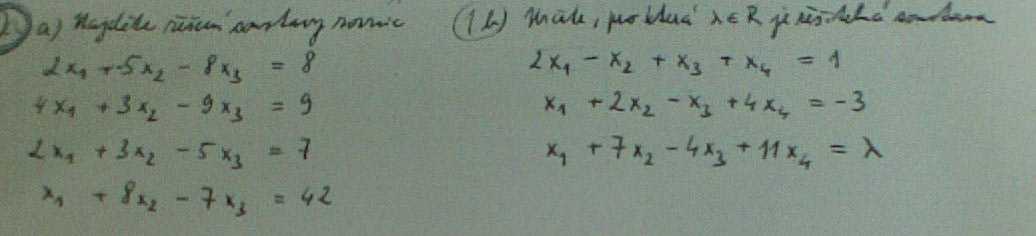 2) a) Najděte řešení soustavy rovnic
2x₁ + 5x₂ - 8x₃ = 8
4x₁ + 3x₂ - 9x₃ = 9
2x₁ + 3x₂ - 5x₃ = 7
x₁ + 8x₂ - 7x₃ = 42
1 b) Určete, pro která λ∈R je řešitelná soustava
2x₁ - x₂ + x₃ + x₄ = 1
x₁ + 2x₂ - x₃ + 4x₄ = -3
x₁ + 7x₂ - 4x₃ + 11x₄ = λ